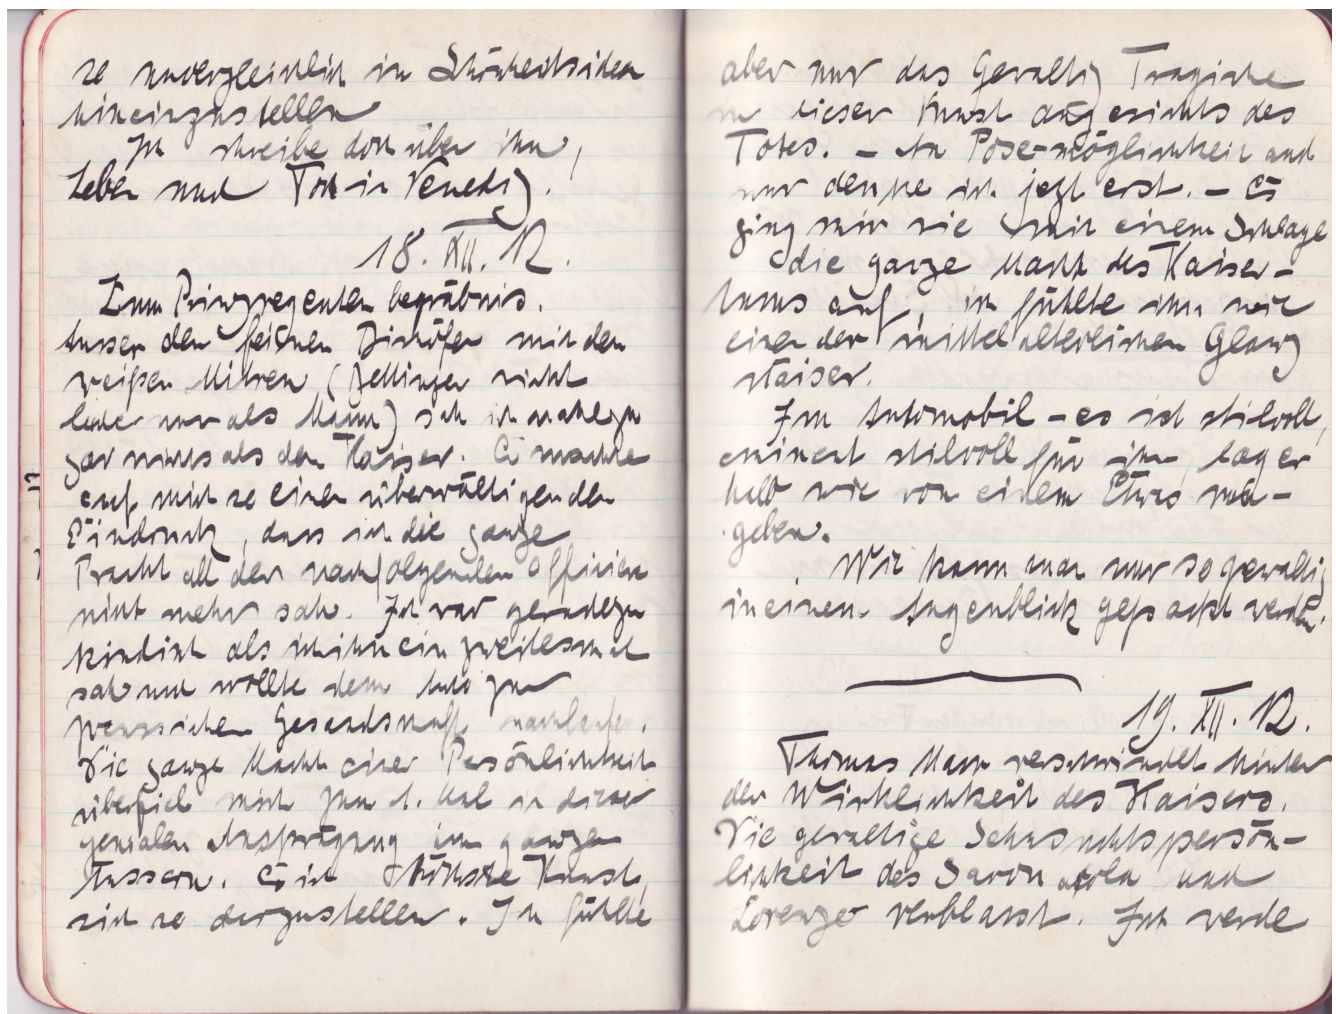 so unvergleichlich in Schönheitsideen
hineinzustellen
Ich schreibe doch über ihn,
Leben und Tod in Venedig.
18. XII. 12.
Zum Prinzregentenbegräbnis.
Ausser den Bischöfen mit den
weißen Mitren (Bettinger nicht
leider nur als Mann) sah ich nahezu
gar nichts als den Kaiser. Er machte
auf mich so einen überwältigenden
Eindruck, dass ich die ganze
Pracht all der nachfolgenden Offiziere
nicht mehr sah. Ich war geradezu
kindisch als ich ihn ein zweitesmal
sah und wollte dem Auto zur
preussischen Gesandschaft nachlaufen.
Die ganze Macht einer Persönlichkeit
überfiel mich zum 1. Mal in dieser
genialen Ausprägung im ganzen
Äussern. Es ist höchste Kunst,
sich so darzustellen. Ich fühlte
aber nur das Gewaltig Tragische
in dieser Kunst angesichts des
Todes. – An Pose-möglichkeit und
nur denke ich jetzt erst. – Es
ging mir wie mit einem Schlage
die ganze Macht des Kaiser-
tums auf, ich fühlte ihn wie
einen der mittelalterlichen Glanz
Kaiser.
Im Automobil – es ist stilvoll,
eminent stilvoll für ihn, lag er
halb wie von einem Etwas um-
geben.
Wie kann man nur so gewaltig
in einem Augenblick gepackt werden.
19. XII. 12.
Thomas Mann verschwindet hinter
der Wirklichkeit des Kaisers.
Die gewaltige Sehnsuchtspersön-
lichkeit des Savonarola und
Lorenzo verblasst. Ich werde